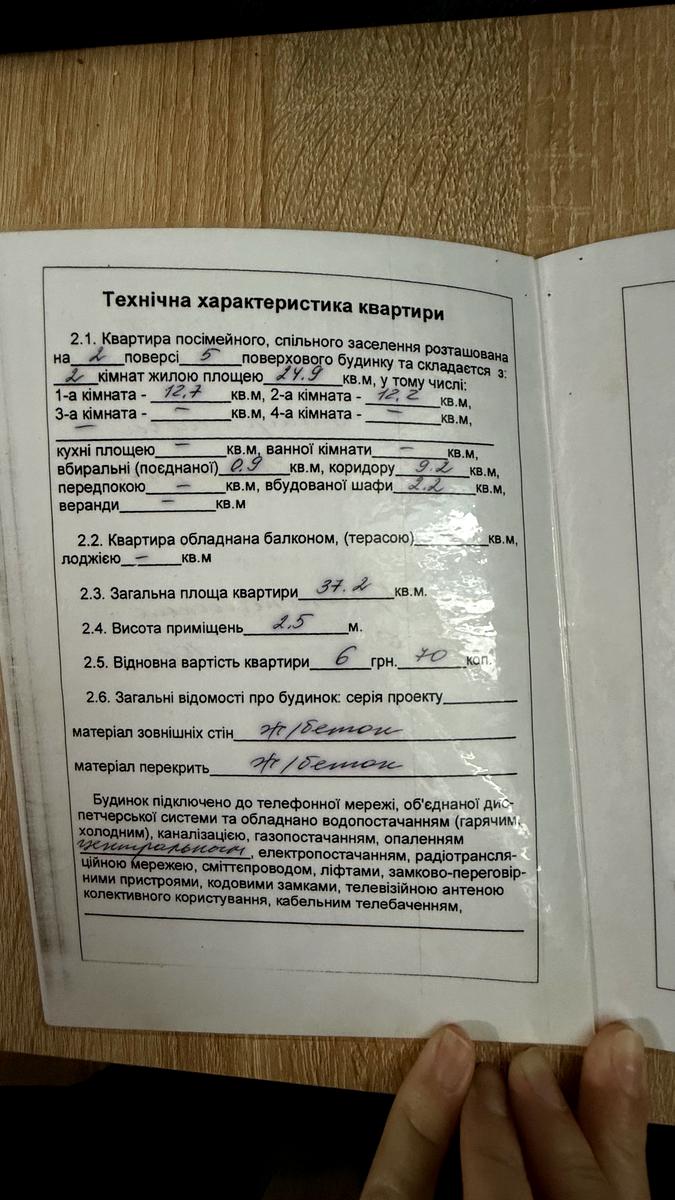 Технічна характеристика квартири
2.1. Квартира посімейного, спільного заселення розташована
на 2 поверсі 5 поверхового будинку та складается з:
2 кімнат жилою площею 24.9 кв.м, у тому числі:
1-а кімната - 12.7 кв.м, 2-а кімната - 12.2 кв.м,
3-а кімната - — кв.м, 4-а кімната - — кв.м,
—
кухні площею — кв.м, ванної кімнати — кв.м,
вбиральні (поєднаної) 0.9 кв.м, коридору 9.2 кв.м,
передпокою — кв.м, вбудованої шафи 2.2 кв.м,
веранди — кв.м
2.2. Квартира обладнана балконом, (терасою) — кв.м,
лоджією — кв.м
2.3. Загальна площа квартири 37.2 кв.м.
2.4. Висота приміщень 2.5 м.
2.5. Відновна вартість квартири 6 грн. 70 коп.
2.6. Загальні відомості про будинок: серія проекту
матеріал зовнішніх стін ж/бетон
матеріал перекрить ж/бетон
Будинок підключено до телефонної мережі, об'єднаної дис-
петчерської системи та обладнано водопостачанням (гарячим,
холодним), каналізацією, газопостачанням, опаленням
центральным, електропостачанням, радіотрансля-
ційною мережею, сміттєпроводом, ліфтами, замково-переговір-
ними пристроями, кодовими замками, телевізійною антеною
колективного користування, кабельним телебаченням,